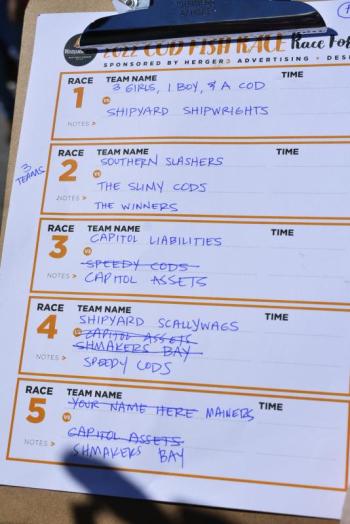 2022 COD FISH RACE Race For
SPONSORED BY HERGER3 ADVERTISING • DES
RACE TEAM NAME TIME
1 3 GIRLS, 1 BOY, & A COD
VS
SHIPYARD SHIPWRIGHTS
NOTES >
3 TEAMS
RACE TEAM NAME TIME
2 SOUTHERN SLASHERS
VS
THE SLIMY CODS
NOTES > THE WINNERS
RACE TEAM NAME TIME
3 CAPITOL LIABILITIES
VS
SPEEDY CODS
NOTES > CAPITOL ASSETS
RACE TEAM NAME
4 SHIPYARD SCALLYWAGS TIME
VS CAPITOL ASSETS
SHMAKERS BAY
NOTES > SPEEDY CODS
RACE TEAM NAME
5 YOUR NAME HERE MAINERS TIME
VS
CAPITOL ASSETS
NOTES > SHMAKERS BAY